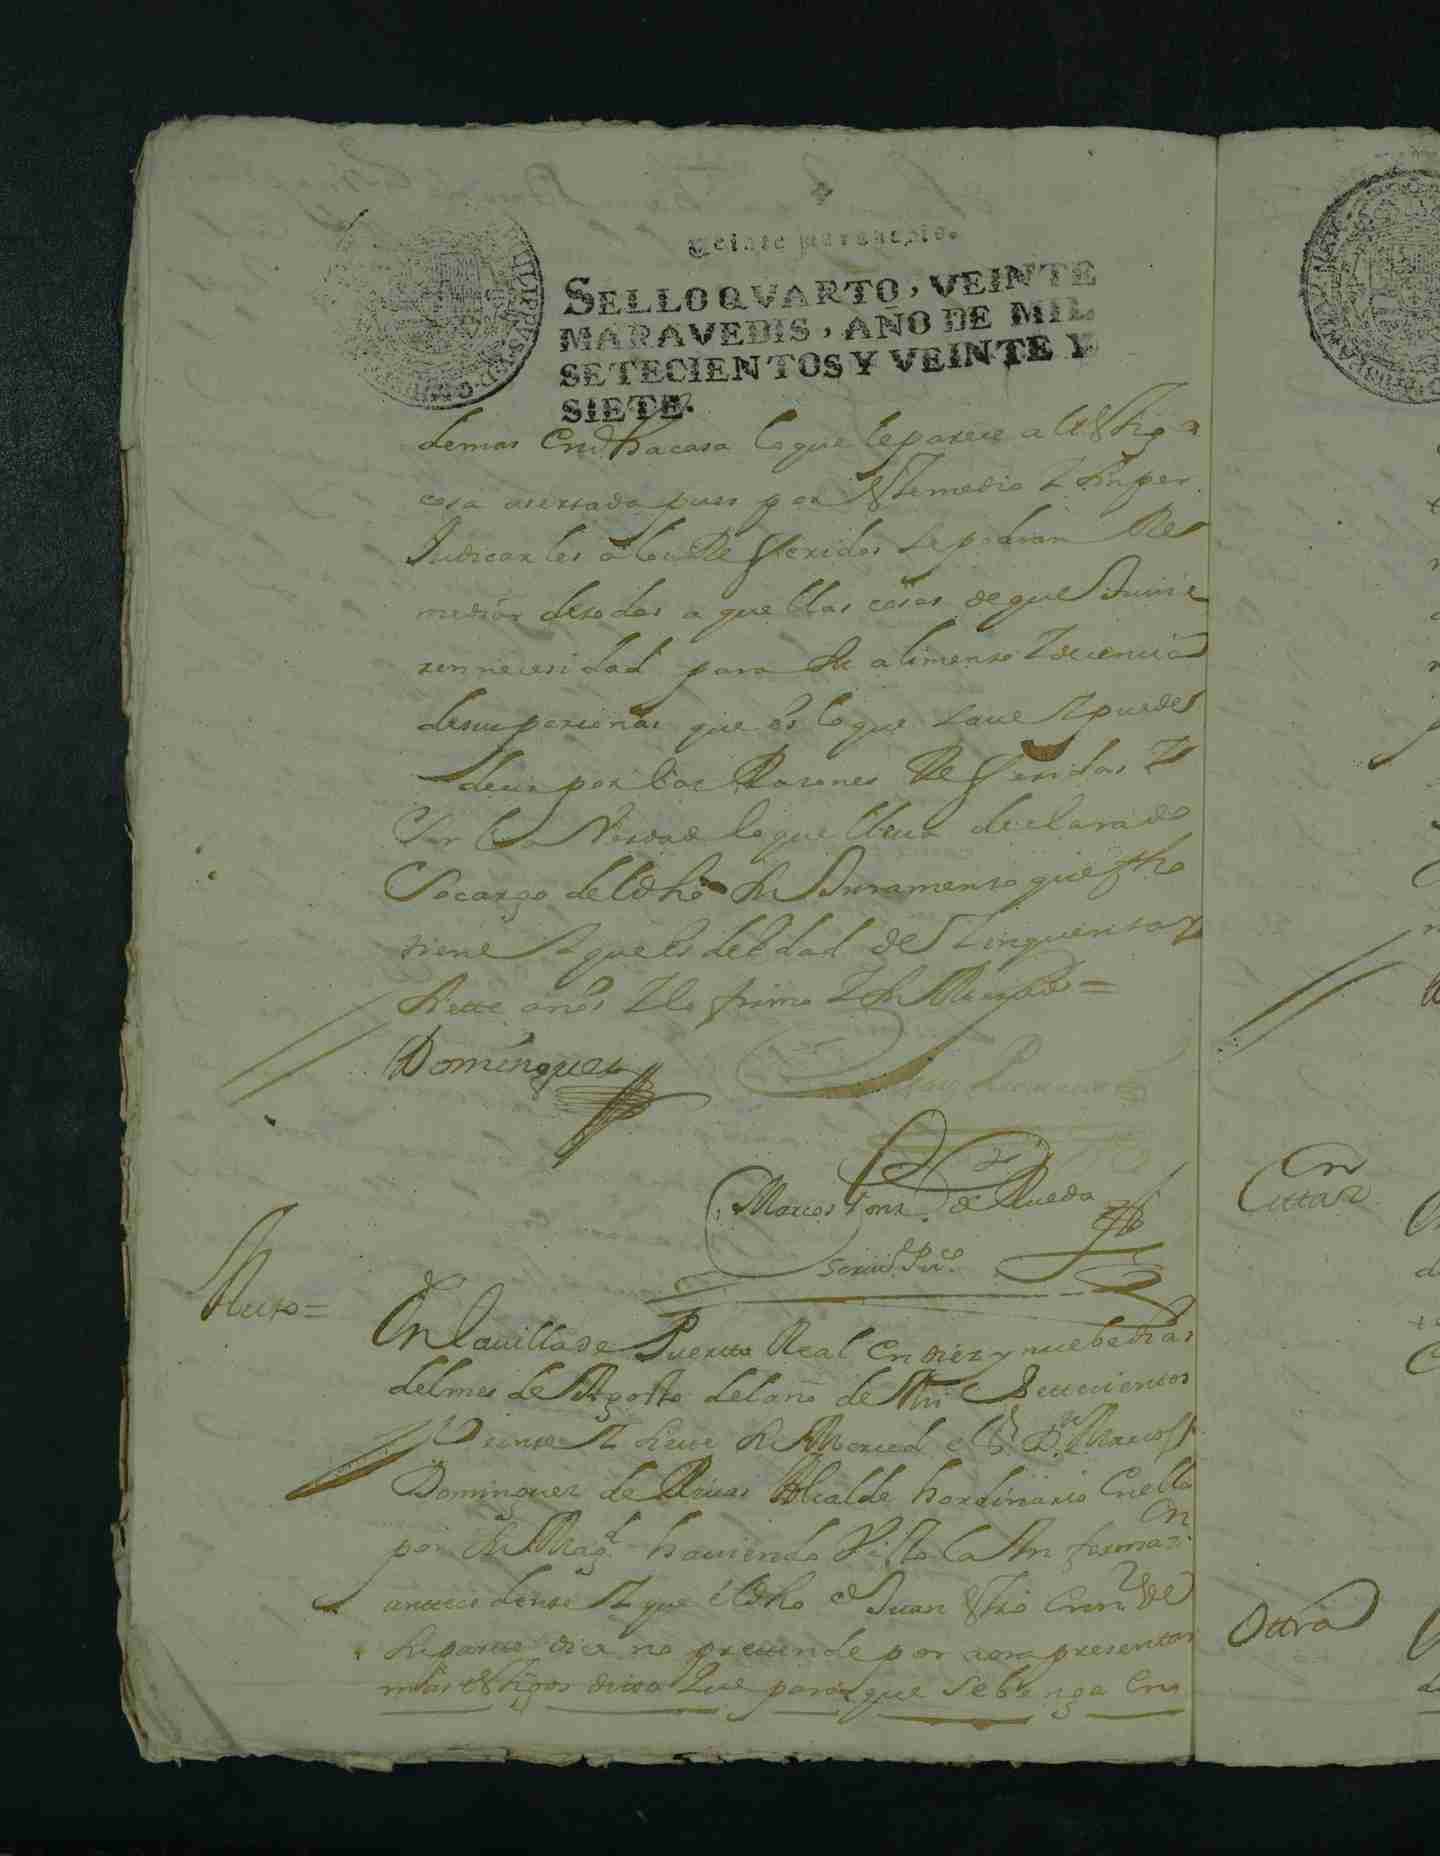 Veinte maravedis.
SELLO QVARTO, VEINTE
MARAVEDIS, AÑO DE MIL
SETECIENTOS Y VEINTE Y
SIETE.
demas En dha casa lo que le parece al testigo
cosa asertada pues por este medio y sin per
Judicarles a los Referidos se podran Re
mediar de todas aquellas cosas de que tuvie
ren necesidad para su alimento y decencia
de sus personas que es lo que save y puede
decir por las Rasones Referidas y
Ser la Verdad lo que lleva declarado
So cargo del dho su Juramento que fho
tiene y que es de hedad de Sinquenta y
siette años y lo firmo y su Merced =
Dominguez
Marcos Gonz. de Rueda
Scriu. Puco.
Autto =
En la villa de Puertto Real en diez y nuebe dias
del mes de Agosto del año de Mil Settecientos
Veinte y siete su Merced el Sr. Dn. Marcos
Dominguez de Rivas Alcalde hordinario En ella
por su Magd. haviendo Visto la Informazn.
antecedente y que el dho Juan
su parte dize no prettende por aora presentar
mas testigos dixo que para que se benga en
En
Cittaz
Ottra